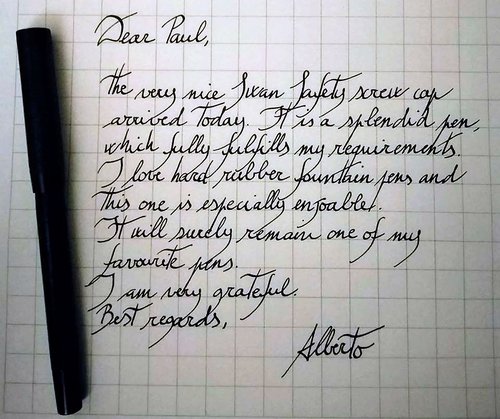 Dear Paul,
The very nice Swan Safety screw cap
arrived today. It is a splendid pen,
which fully fulfills my requirements.
I love hard rubber fountain pens and
this one is especially enjoable.
It will surely remain one of my
favourite pens.
I am very grateful.
Best regards,
Alberto